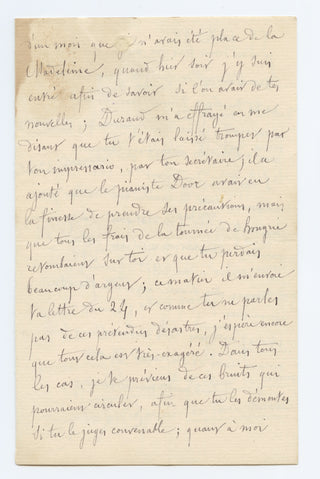 d'un mois que je n'avais été place de la
Madeleine, quand hier soir j'y suis
entré afin de savoir si l'on avait de tes
nouvelles ; Durand m'a effrayé en me
disant que tu t'étais laissé tromper par
ton impressario, par ton secretaire ; il a
ajouté que le pianiste Door avait eu
la finesse de prendre ses précautions, mais
que tous les frais de la tournée de Hongrie
retombaient sur toi et que tu perdais
beaucoup d'argent ; ce matin il m'envoie
ta lettre du 24, et comme tu ne parles
pas de ces prétendus désastres, j'espère encore
que tout cela est très-exagéré. Dans tous
les cas, je te préviens de ces bruits qui
pourraient circuler, afin que tu les démentes
si tu le juges convenable ; quant à moi